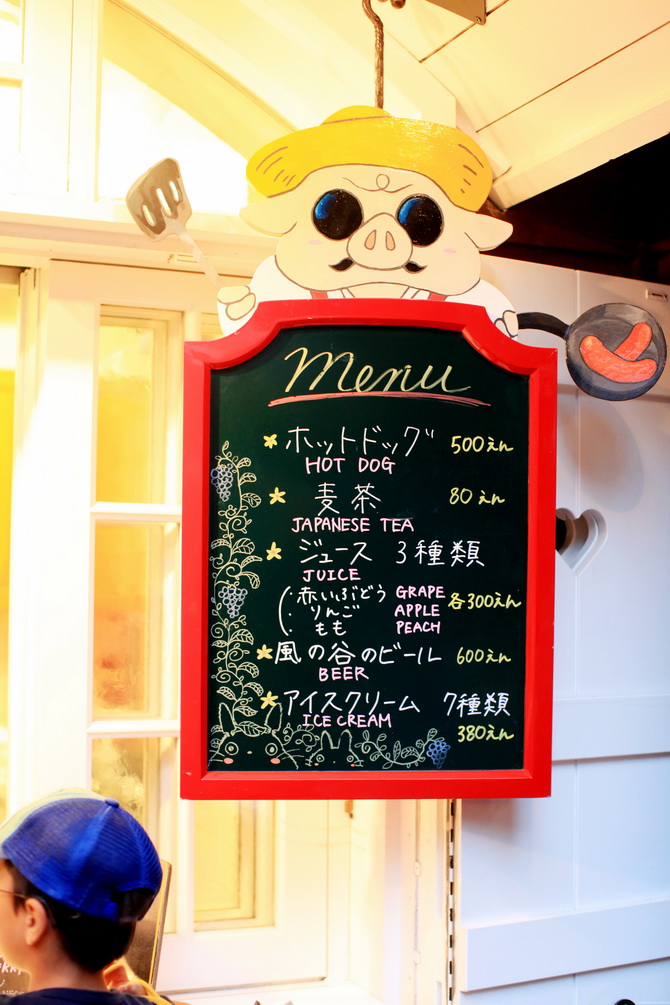 Menu
ホットドッグ 500えん
HOT DOG
麦茶 80えん
JAPANESE TEA
ジュース 3種類
JUICE
赤いぶどう GRAPE
りんご APPLE 各300えん
もも PEACH
風の谷のビール 600えん
BEER
アイスクリーム 7種類
ICE CREAM 380えん